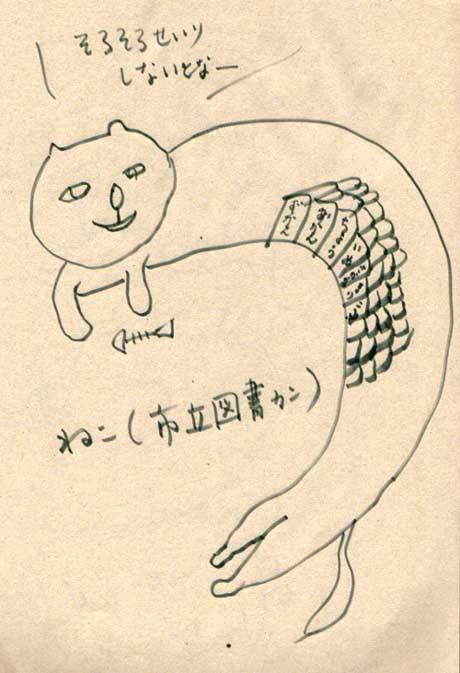 そろそろせいり
しないとなー
ずかん
ずかん
ねこ(市立図書カン)